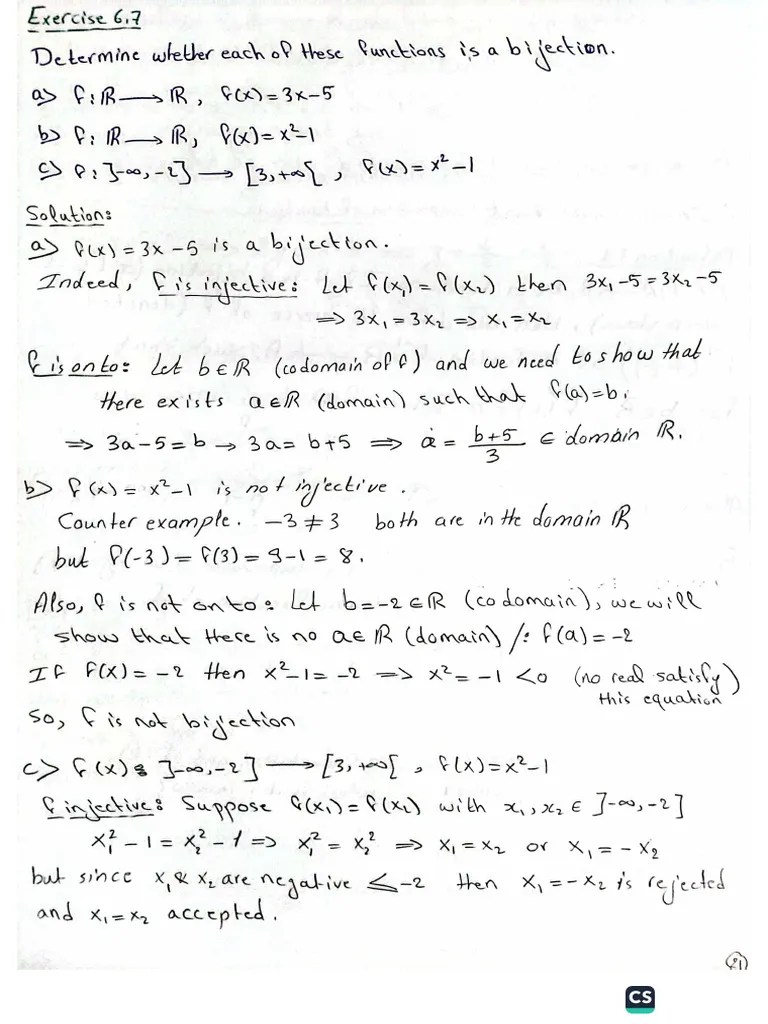 Exercise 6.7
Determine whether each of these functions is a bijection.
a) f: ℝ → ℝ, f(x) = 3x-5
b) f: ℝ → ℝ, f(x) = x²-1
c) f: ]-∞, -2] → [3, +∞[, f(x) = x²-1
Solution:
a) f(x) = 3x-5 is a bijection.
Indeed, f is injective: Let f(x₁) = f(x₂) then 3x₁-5 = 3x₂-5
⇒ 3x₁ = 3x₂ ⇒ x₁ = x₂
f is onto: Let b∈ℝ (codomain of f) and we need to show that
there exists a∈ℝ (domain) such that f(a)=b.
⇒ 3a-5=b → 3a = b+5 ⇒ a = (b+5)/3 ∈ domain ℝ.
b) f(x) = x²-1 is not injective.
Counter example. -3 ≠ 3 both are in the domain ℝ
but f(-3) = f(3) = 9-1 = 8.
Also, f is not onto: Let b=-2∈ℝ (codomain), we will
show that there is no a∈ℝ (domain) /: f(a) = -2
If f(x) = -2 then x²-1 = -2 ⇒ x² = -1 <0 (no real satisfy
this equation)
So, f is not bijection
c) f(x): ]-∞, -2] → [3, +∞[, f(x) = x²-1
f injective: Suppose f(x₁) = f(x₂) with x₁, x₂ ∈ ]-∞, -2]
x₁² - 1 = x₂² - 1 ⇒ x₁² = x₂² ⇒ x₁ = x₂ or x₁ = -x₂
but since x₁ & x₂ are negative ≤ -2 then x₁ = -x₂ is rejected
and x₁ = x₂ accepted.
CS